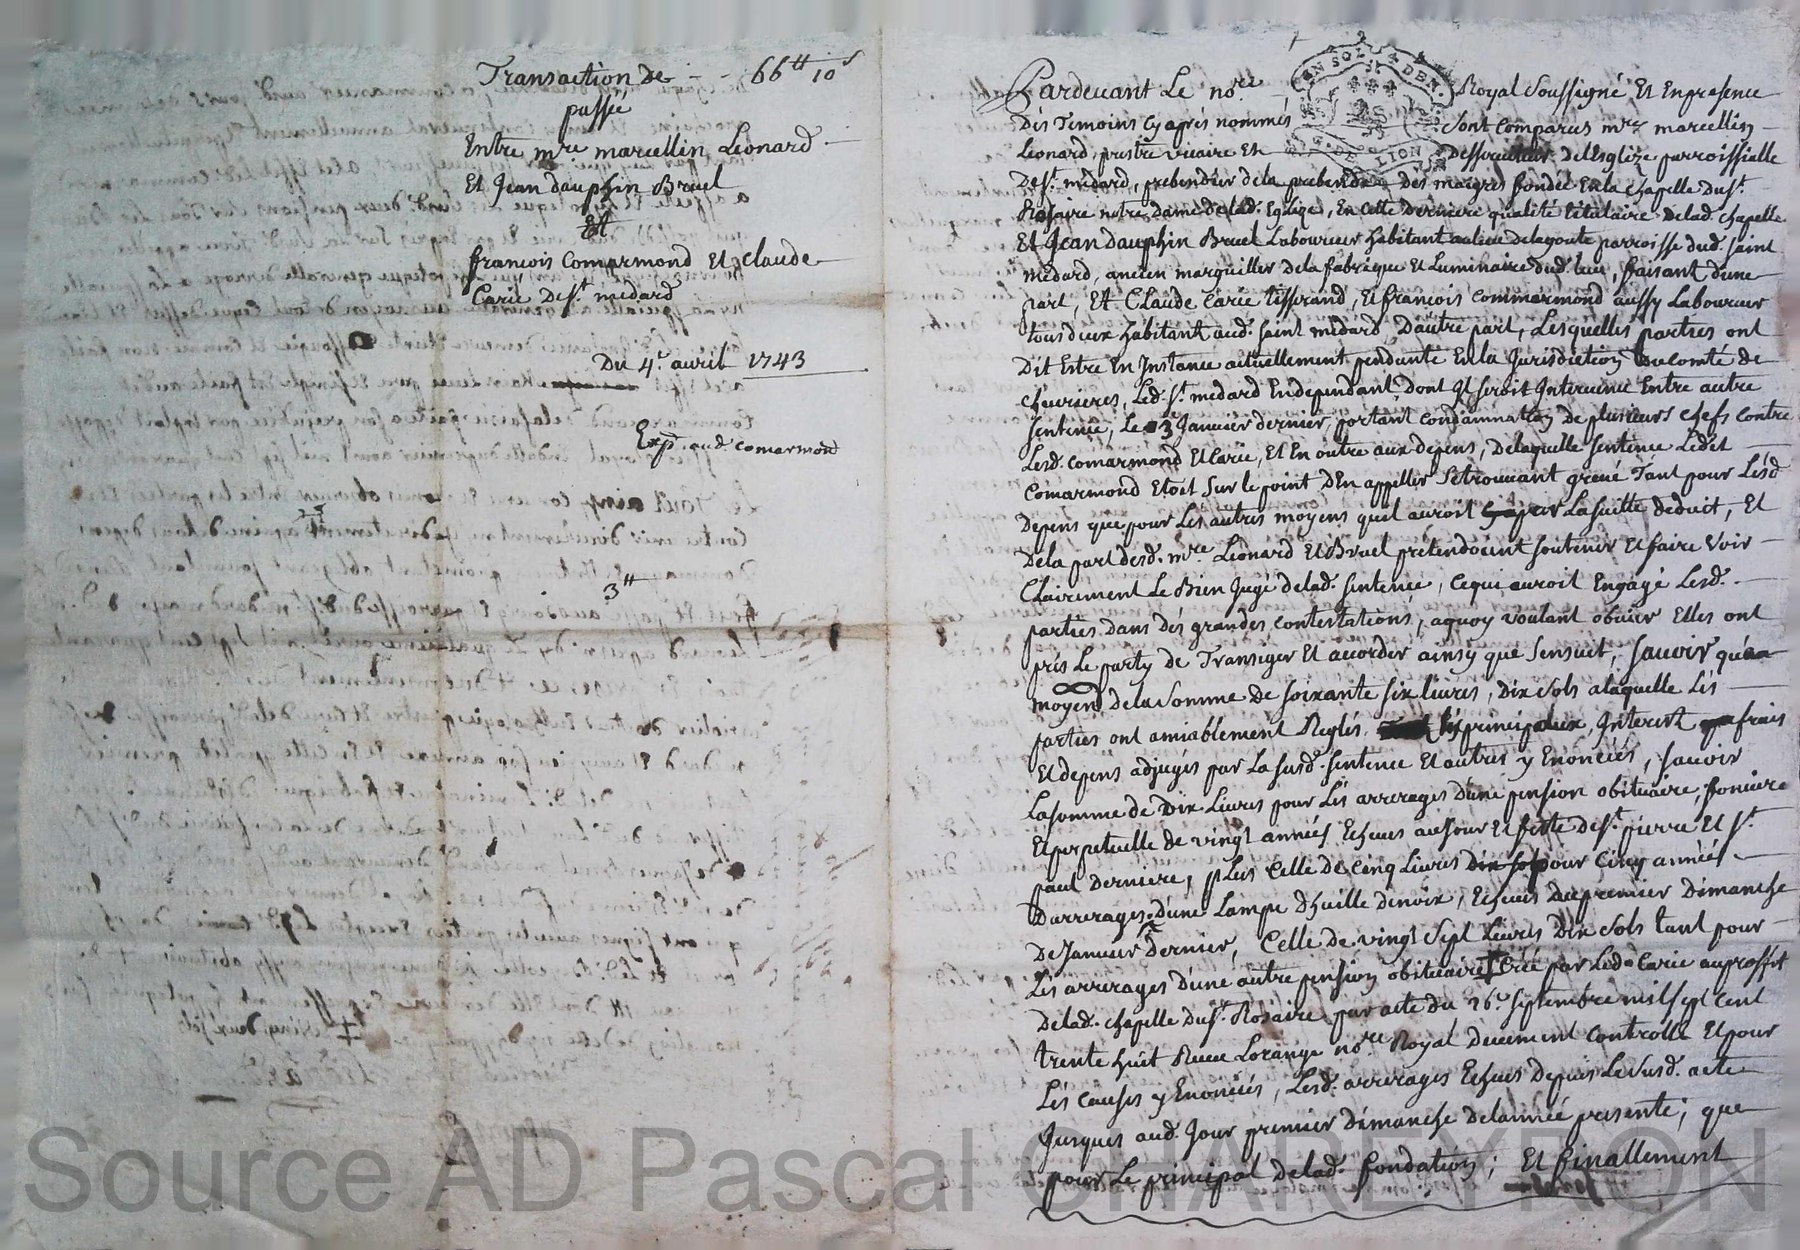 Transaction de - - 66tt 10s
passée
Entre mre marcellin Léonard
Et Jean dauphin Bruel
Et
françois Comarmond Et Claude
Carie De st. medard
Du 4e. avril 1743
Exp. aud. comarmond
3tt
Pardevant Le nore. Royal Soussigné Et En presence
Dés Temoins Cy aprés nommés sont comparus mres marcellin
Léonard, prestre vicaire Et Desserviteur de l'Esglize parroissialle
De st. medard, prebendier de la prebende Des maigres fondée En la Chapelle du st.
Rosaire notre dame de lad. Eglize, En Cette derniere qualité titulaire de lad. chapelle
Et Jean dauphin Bruel Laboureur habitant au lieu de lagoute parroisse dud. saint
medard, ancien marguiller de la fabrique Et Luminaire dud. lieu, faisant d'une
part, Et Claude Carie tisserand, Et françois Commarmond aussy Laboureur
tous deux habitant aud. saint medard, D'autre part, Lesquelles parties ont
Dit Estre En Instance actuellement pendante En la Jurisdiction Du Comté de
Chevrieres, Led. st. medard En dependant, Dont Il seroit Intervenu Entre autre
sentence, Le 3 Janvier dernier, portant condamnation De plusieurs chefs contre
Lesd. comarmond Et Carie, Et En outre aux depens, De laquelle sentence Ledit
Comarmond Etoit sur le point D'En appeller se trouvant grevé Tant pour Lesd.
Depens que pour Les autres moyens quil auroit par La suitte deduit, Et
De la part desd. mre Léonard Et Bruel pretendoient soutenir Et faire Voir
Clairement Le Bien Jugé de lad. sentence, Ce qui auroit Engagé Lesd.
parties Dans Dés grandes contestations, a quoy voulant obvier Elles ont
pris Le party de Transiger Et accorder ainsy que s'ensuit, sauoir qu'au
moyen de la somme De soixante six livres, Dix sols a laquelle Les
parties ont amiablement Reglés principaux, Interest frais
Et depens adjugés par La susd. sentence Et autres y Enoncées, sauoir
La somme de Dix Livres pour Lés arrerages d'une pension obituaire, fonciere
Et perpetuelle de vingt années Echeues au Jour Et feste de st. pierre Et st.
paul Derniere, plus Celle De Cinq Livres Dix sols pour Cinq années
D'arrerages d'une Lampe d'huille de noix, Echeues Du premier Dimanche
De Janvier Dernier, Celle de vingt sept Livres Dix sols tant pour
Les arrerages d'une autre pension obituaire Créé par Led. Carie au proffit
De lad. chapelle Du st. Rosaire par acte du 26e. septembre mil sept Cent
trente huit Receu Lorange nore Royal Deuement Controllé Et pour
Lés Causes y Enoncées, Lesd. arrerages Echeus Depuis Le susd. acte
Jusques aud. Jour premier Dimanche de l'année presente; que
pour Le principal de lad. fondation; Et finallement
Source AD Pascal CHAREYRON